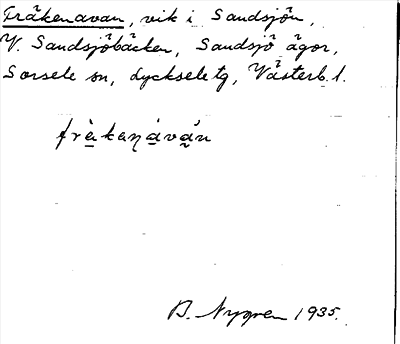 Fräkenavan, vik i Sandsjön,
V. Sandsjöbäcken, Sandsjö ägor,
Sorsele sn, Lycksele tg, Västerb. l.
fràkenáván
B. Nygren 1935.